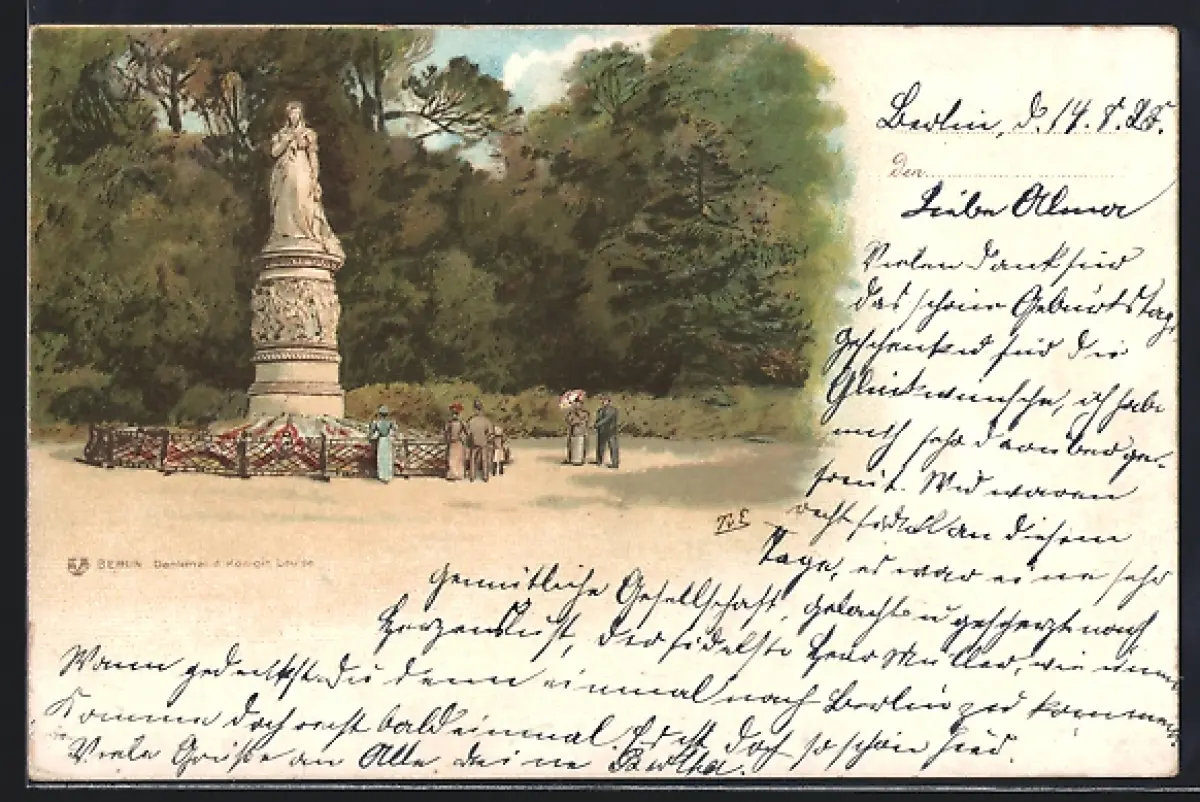 Berlin, d. 14. 8. 98.
den
Liebe Alma
Vielen Dank für
das schöne Geburtstags
geschenk u für die
Glückwünsche, ich habe
mich sehr darüber ge-
freut. Wir waren
recht fidel an diesem
Tage, es war eine sehr
gemütliche Gesellschaft, gelacht u gescherzt nach
Herzenslust, der fidelste Herr Müller, wie immer
Wann gedenkst du denn einmal nach Berlin zu kommen
Komme doch recht bald einmal. Es ist doch so schön hier.
Viele Grüße an Alle deine Bertha.
BERLIN. Denkmal d. Königin Louise